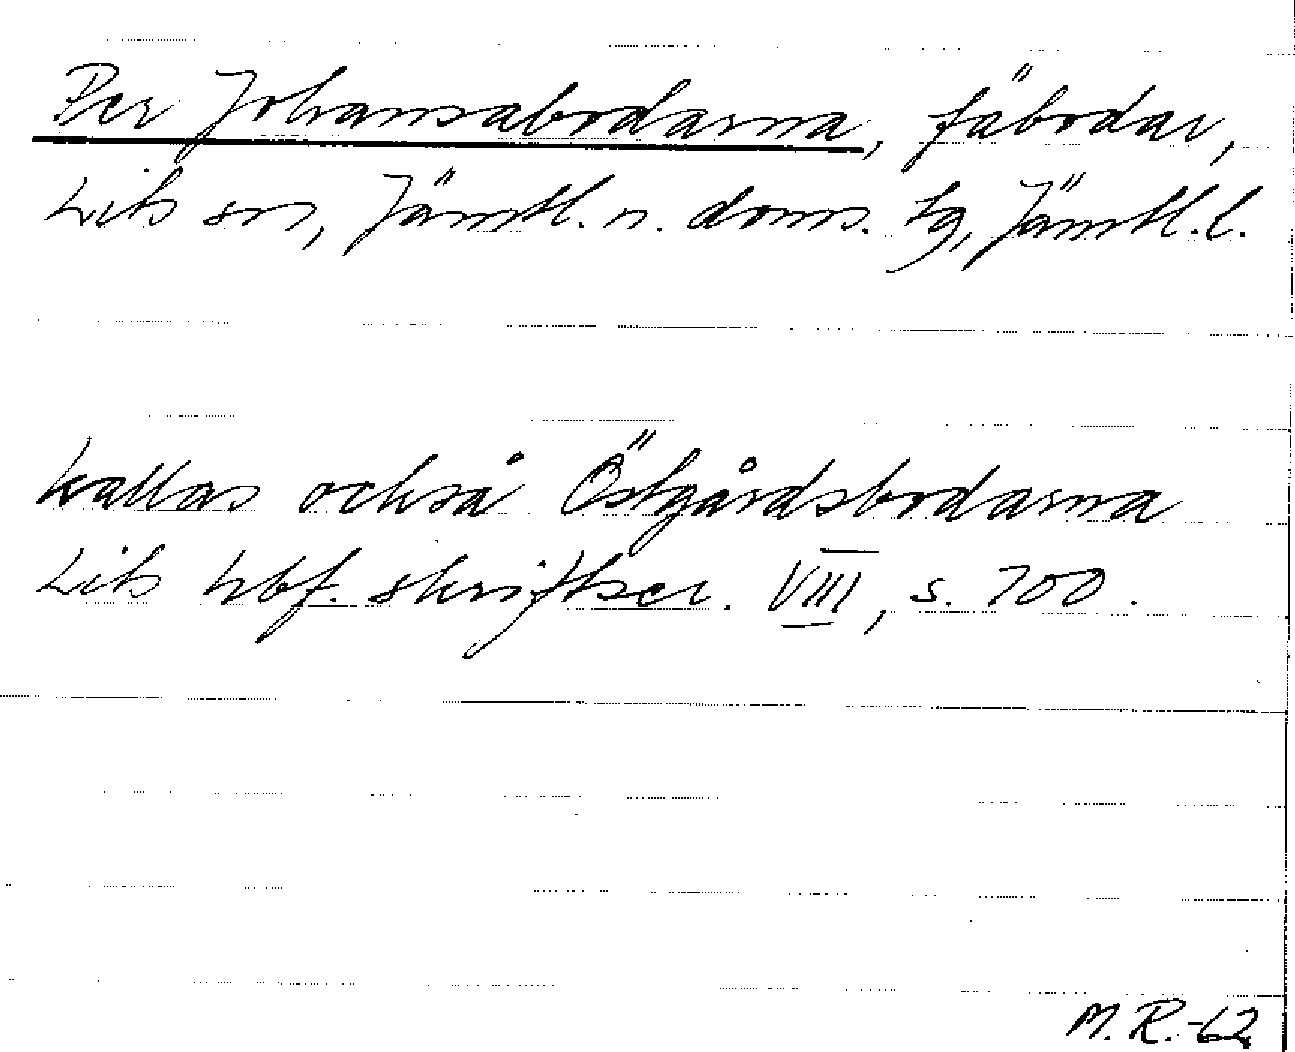 Per Johansabodarna, fäbodar,
Lits sn, Jämtl. n. doms. tg, Jämtl. l.
kallas också Östgårdsbodarna
Lits hbf. skriftser. VIII, s. 700.
M.R.-62